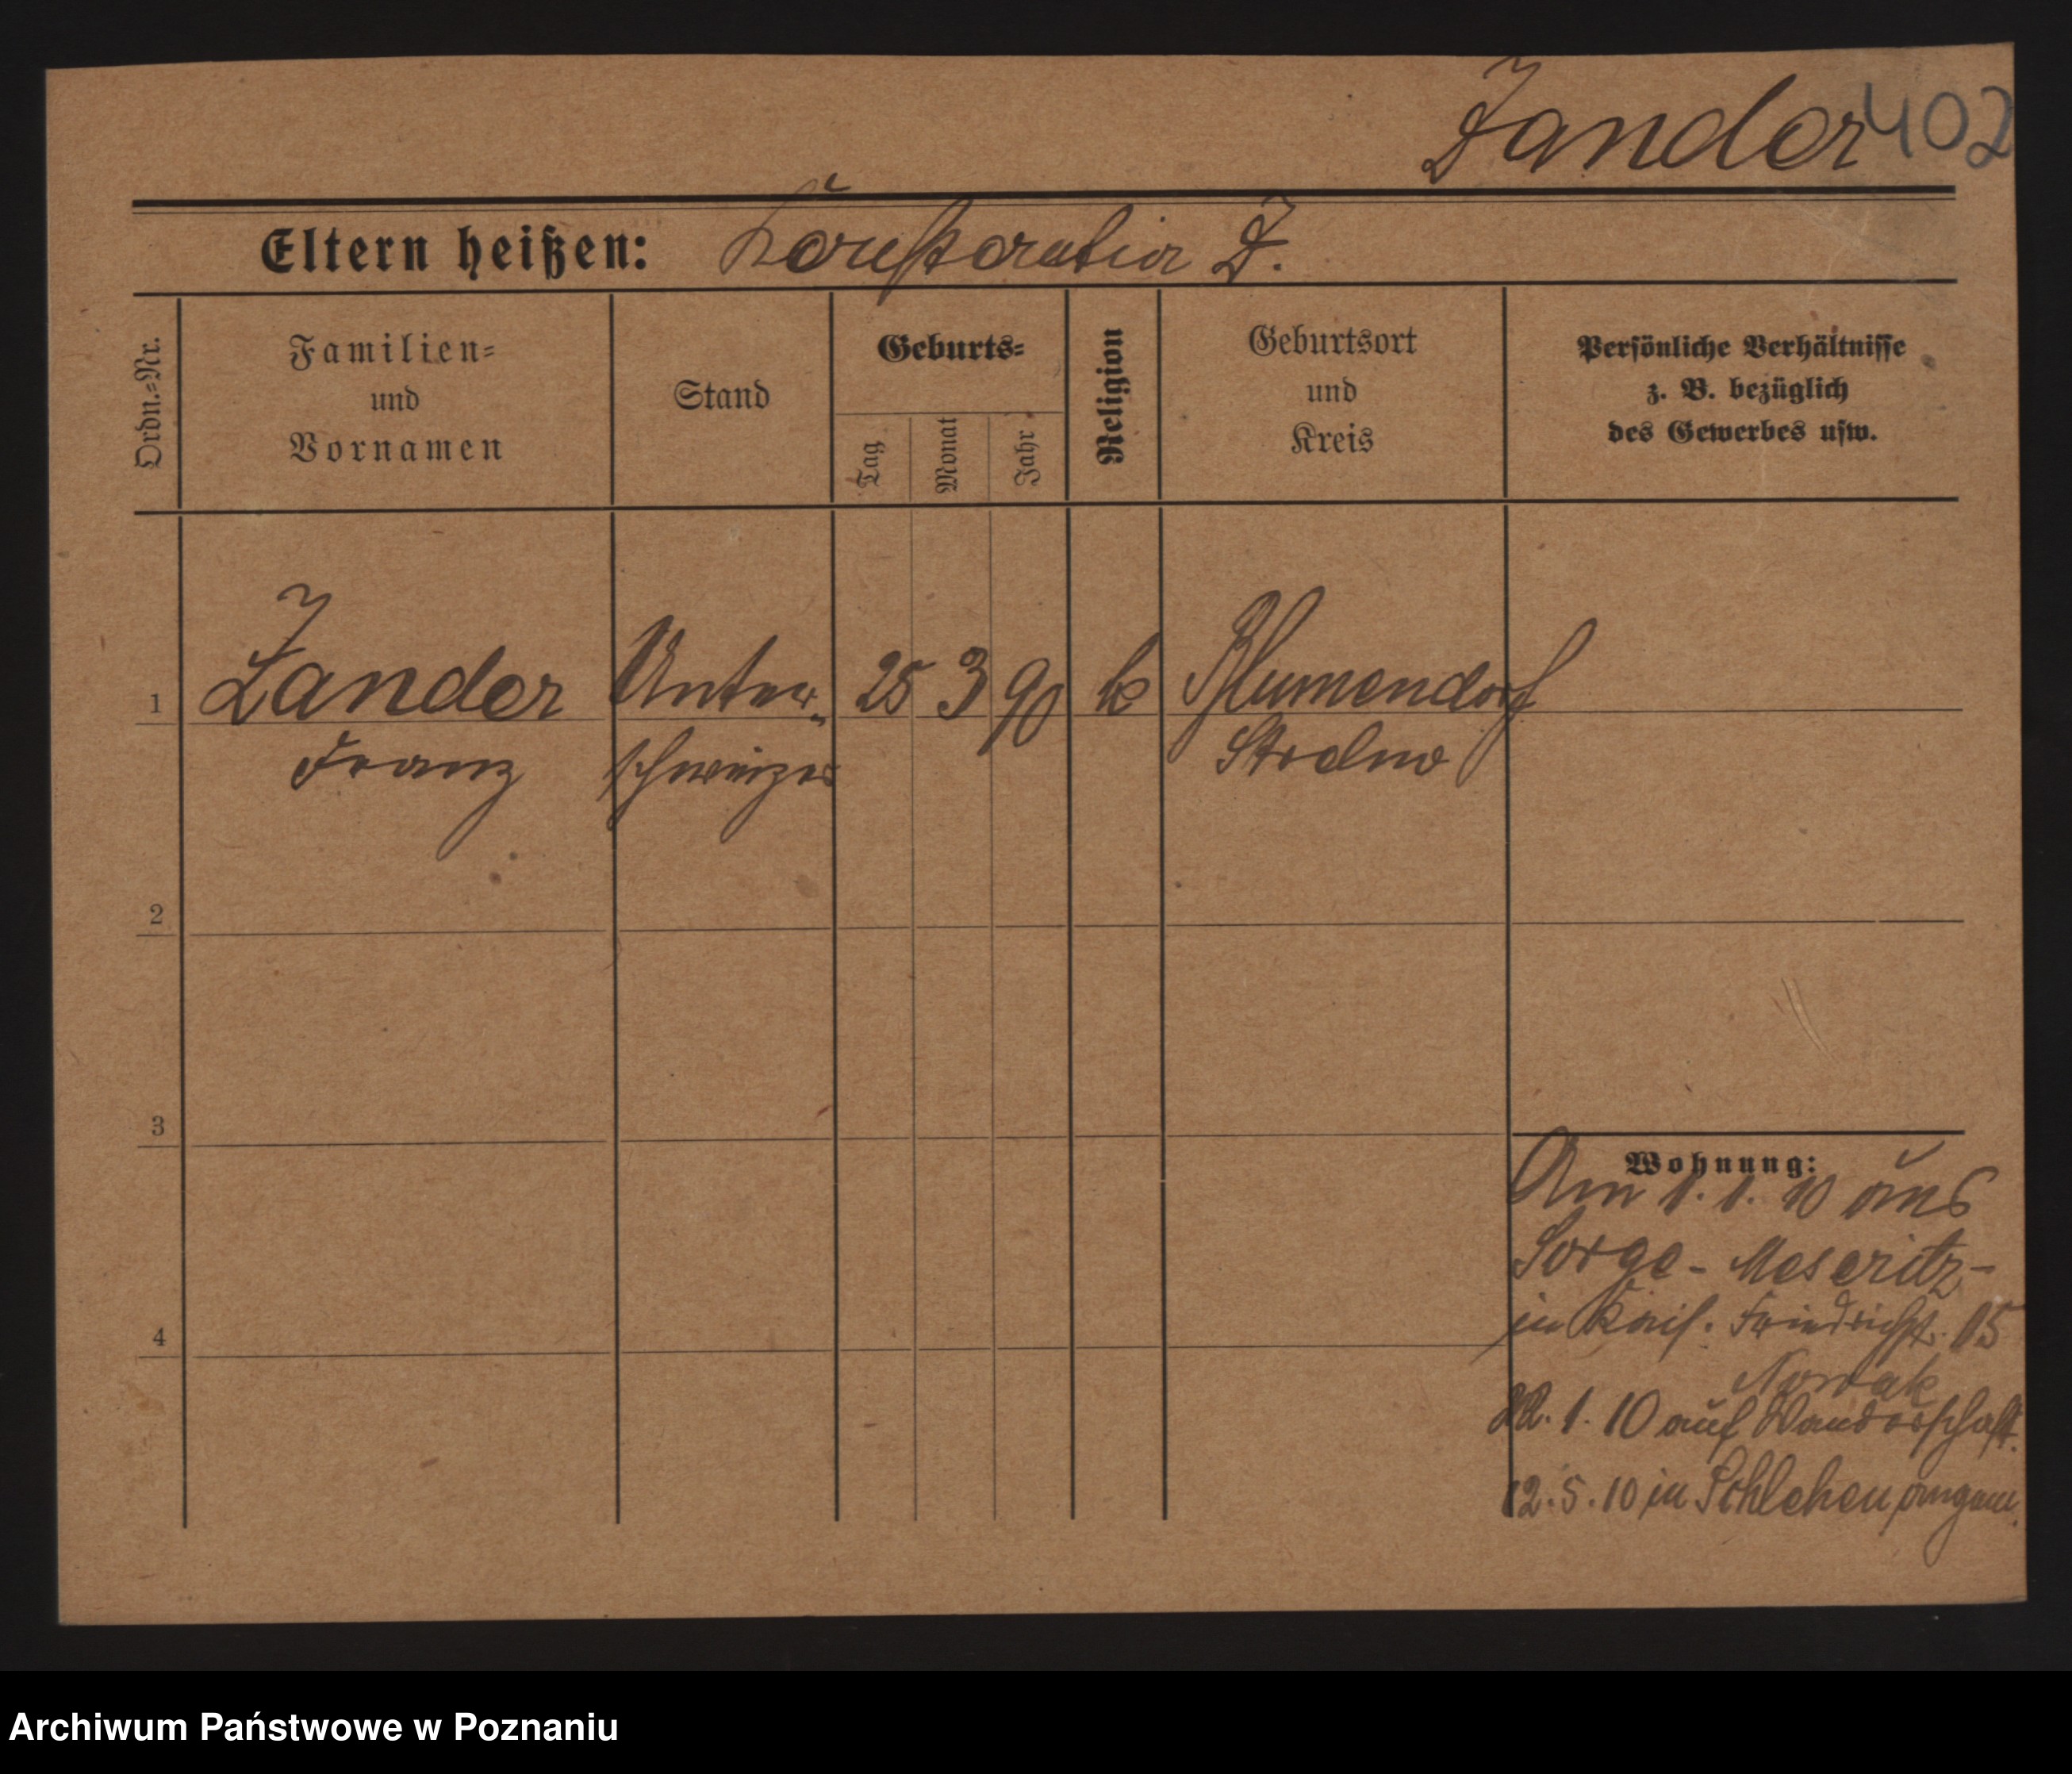 Zander 402
Eltern heißen: Z.
Ordn.=Nr.
Familien=
und
Vornamen
Stand
Geburts=
Tag
Monat
Jahr
Religion
Geburtsort
und
Kreis
Persönliche Verhältnisse
z. B. bezüglich
des Gewerbes usw.
1 Zander Unter- 25 3 90 k Blumendorf
Franz schweizer Strelno
2
3
4
Wohnung:
Am 1. 1. 10 aus
Sorge - Meseritz -
in Kais. Friedrichst. 15
Nowak
1. 10 auf Wanderschaft.
12. 5. 10 in Schlehen angem.
Archiwum Państwowe w Poznaniu